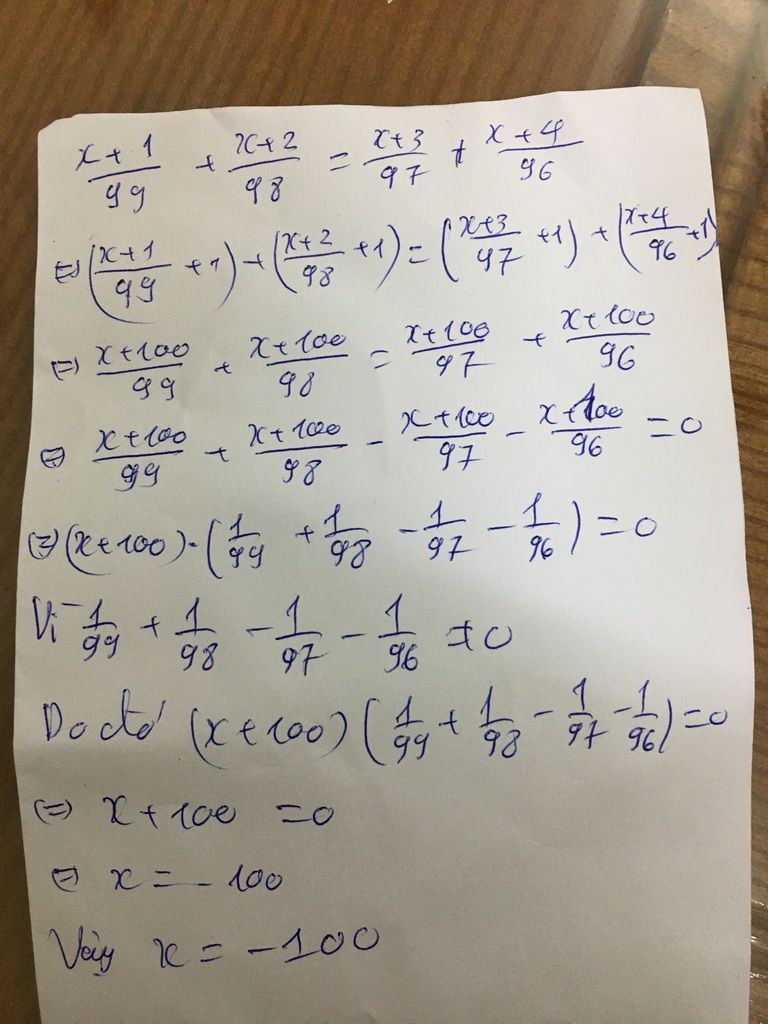 x+1/99 + x+2/98 = x+3/97 + x+4/96
⇔ (x+1/99 +1) + (x+2/98 +1) = (x+3/97 +1) + (x+4/96 +1)
⇔ x+100/99 + x+100/98 = x+100/97 + x+100/96
⇔ x+100/99 + x+100/98 - x+100/97 - x+100/96 = 0
⇔ (x+100).(1/99 + 1/98 - 1/97 - 1/96) = 0
Vì 1/99 + 1/98 - 1/97 - 1/96 ≠ 0
Do đó (x+100)(1/99 + 1/98 - 1/97 - 1/96) = 0
⇔ x+100 = 0
⇔ x = -100
Vậy x = -100